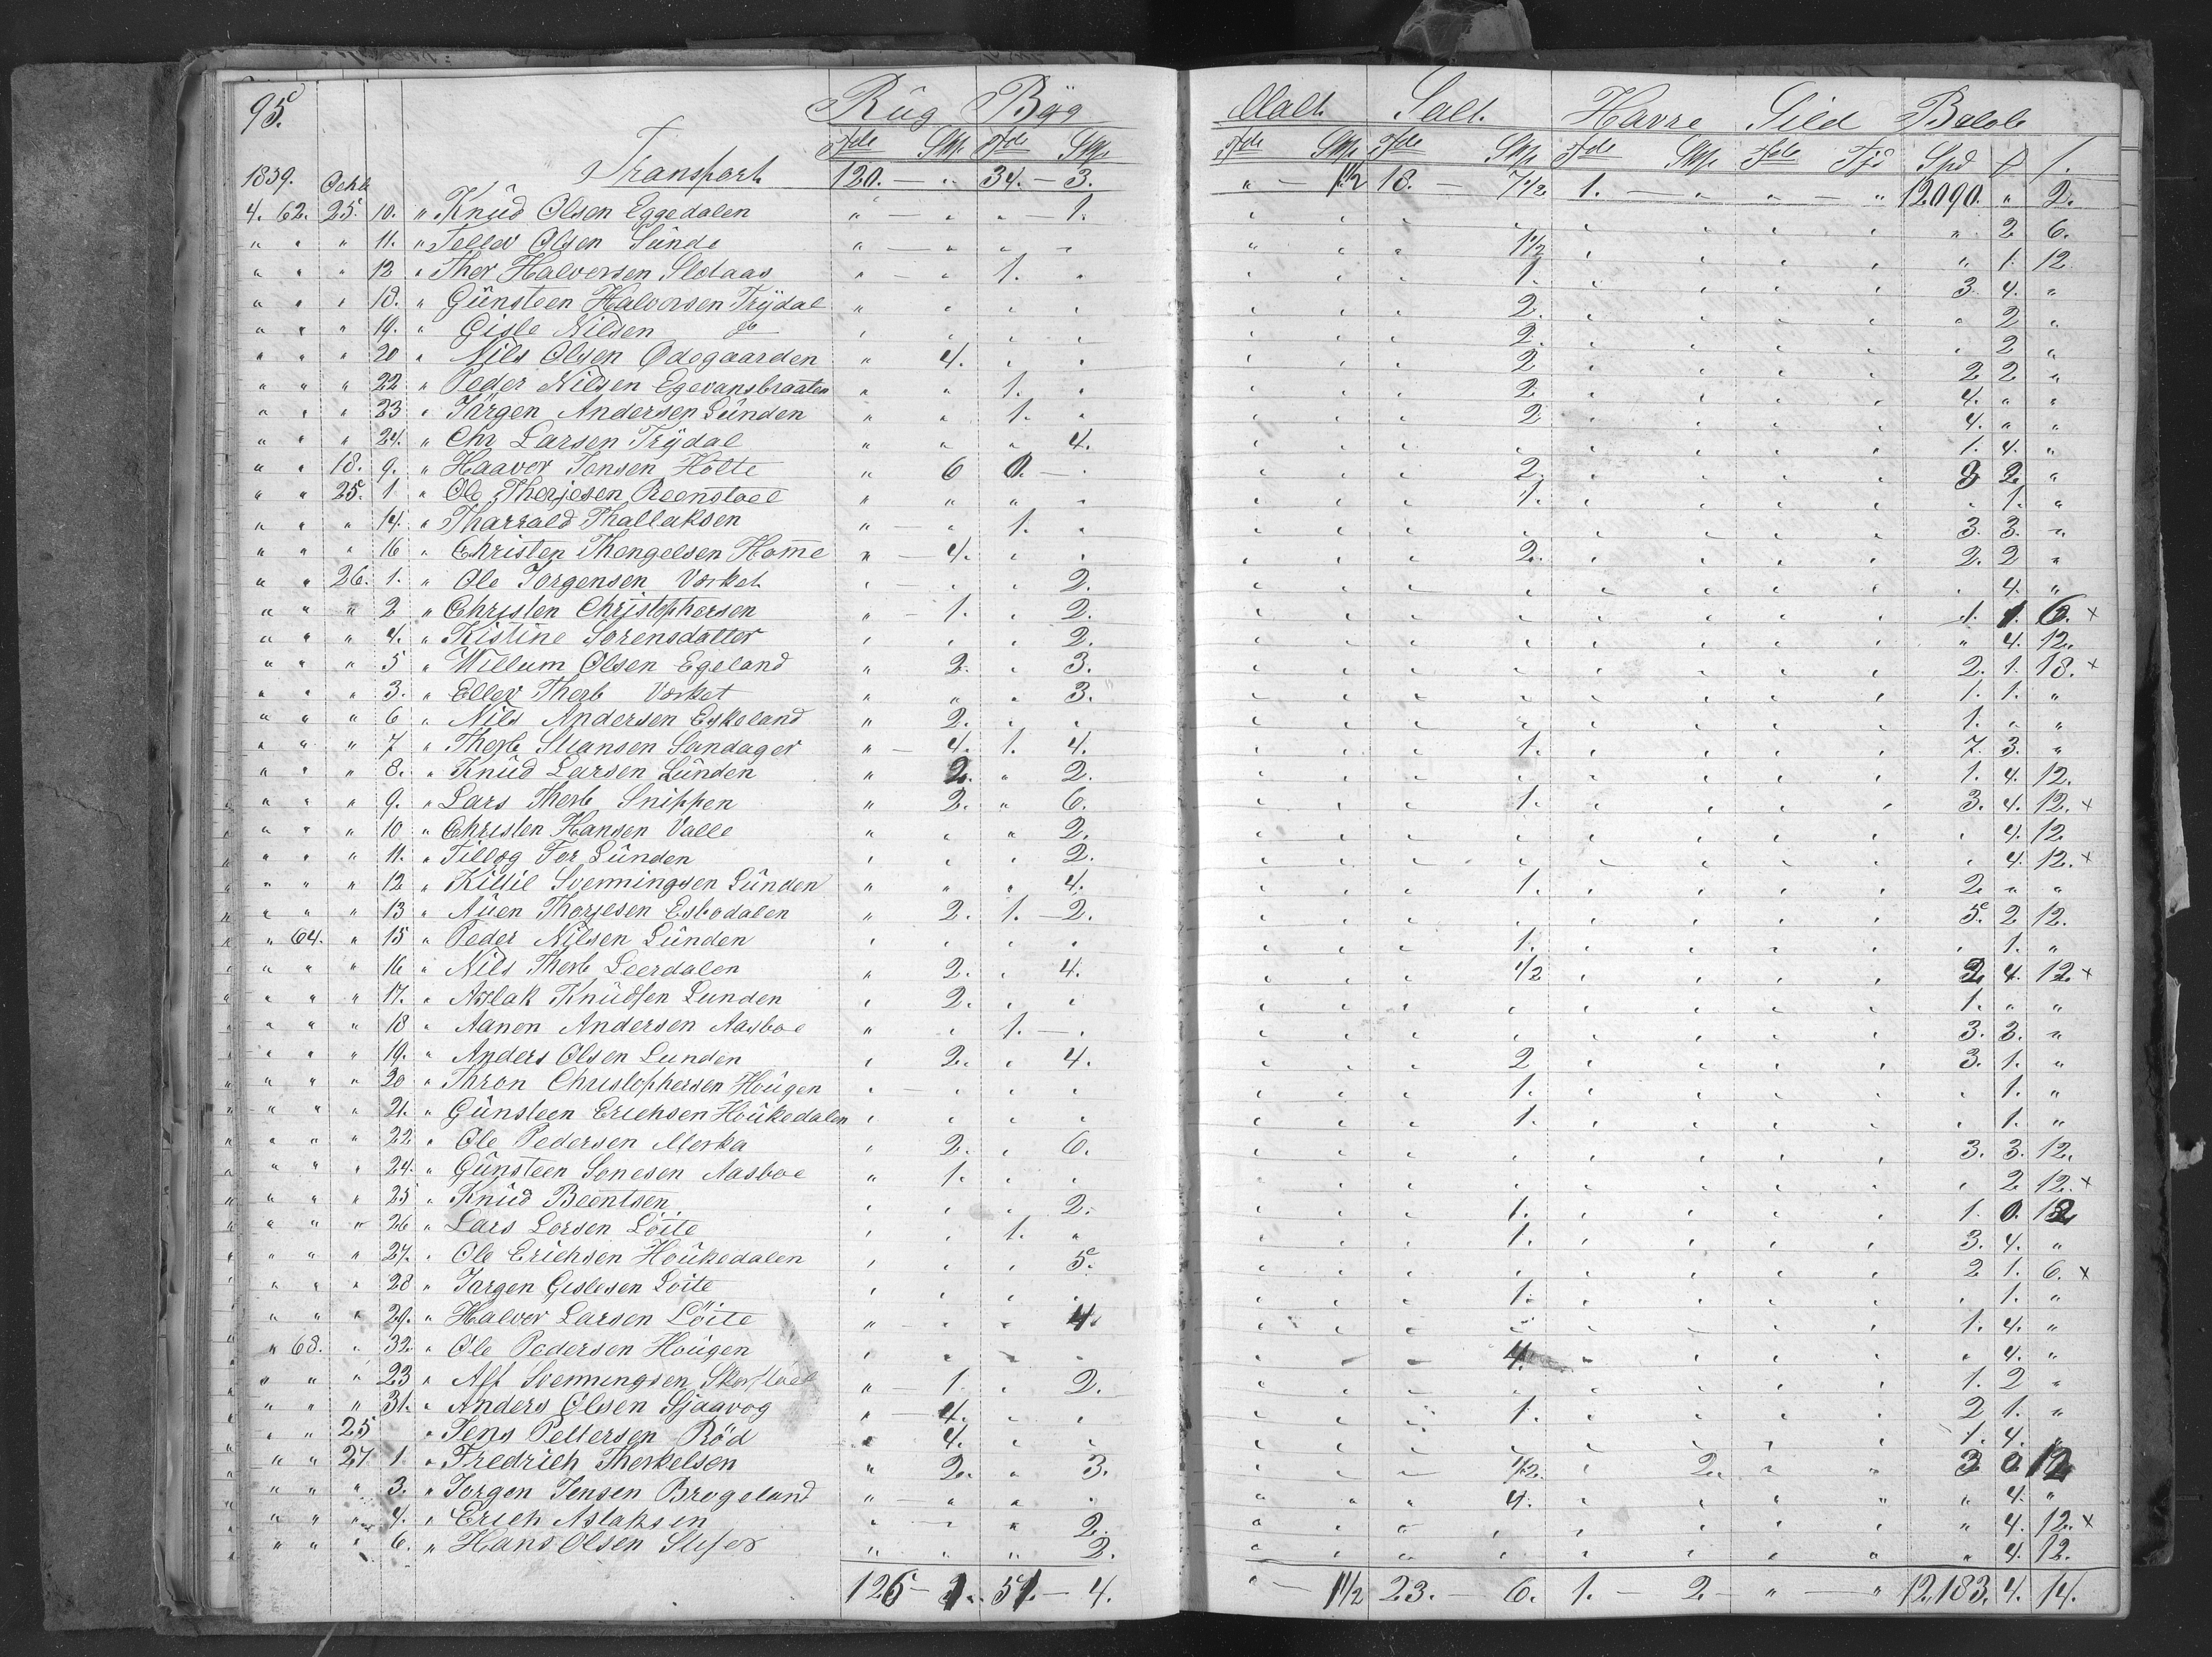 95. Rüg Byg Malt. Salt. Havre Sild Beløb
Tde Skp. Tde Skp. Tde Skp. Tde Skp. Tde Skp. Tde Spd
1839. Octb Transport 120. — „ 34. — 3. „ — 1 1/2 18. — 7 1/2 1. — „ „ — „ 12090. „ 2.
4. 62. 25. 10. „ Knüd Olsen Eggedalen „ — „ „ — 1. „ 2 6.
„ „ „ 11. „ Tellev Olsen Sünde „ — „ „ „ 1 1/2 „ 1. 12
„ „ „ 12 „ Thor Halvorsen Slotaas „ — „ 1. „ 1. 3 4. „
„ „ „ 18. „ Günsteen Halvorsen Trÿdal „ „ „ „ 2. „ 2 „
„ „ „ 19. „ Gisle Nilsen do „ „ „ „ 2. „ 2 „
„ „ „ 20 „ Nils Olsen Ødegaarden „ 4. „ „ 2 2 2 „
„ „ „ 22 „ Peder Nilsen Egevansbraaten „ „ 1. „ 2 4. „ „
„ „ „ 23 „ Järgen Andersen Lünden „ „ 1. „ 2 4. „ „
„ „ „ 24. „ Chr Larsen Trÿdal „ „ „ 4. 1. 4. „
„ „ 18. 9. „ Haaver Jensen Holte „ 6 0. — „ 2. 3 2 „
„ „ 25. 1 „ Ole Therjesen Reenstoel „ „ „ „ 1. „ 1. „
„ „ „ 14. „ Tharrald Thallaksen „ — „ 1. „ 3. 3. „
„ „ „ 16 „ Christen Thengelsen Home „ — 4. „ „ 2. 2. 2 „
„ „ 26. 1. „ Ole Jorgensen Værket „ — „ „ 2. „ 4. „
„ „ „ 2 „ Christen Christophersen „ — 1. „ 2. 1. 1. 6. x
„ „ „ 4. „ Kistine Sorensdatter „ „ „ 2. „ 4. 12.
„ „ „ 5 „ Willum Olsen Egeland „ 2. „ 3. 2. 1. 18. x
„ „ „ 3. „ Ellev Therb Værket „ „ „ 3. 1. 1. „
„ „ „ 6 „ Nils Andersen Eskeland „ 2. „ „ 1. „ „
„ „ „ 7 „ Therb Stiansen Sandager „ — 4. 1. 4. 1. 7. 3. „
„ „ „ 8. „ Knüd Larsen Lünden „ 2. „ 2. 1. 4. 12.
„ „ „ 9. „ Lars Therb Snippen „ 2. „ 6. 1. 3. 4. 12. x
„ „ „ 10 „ Christen Hansen Valle „ „ „ 2. „ 4. 12
„ „ „ 11. „ Tillog For Lünden „ „ „ 2. „ 4. 12. x
„ „ „ 12 „ Kittil Svenningsen Lünden „ „ „ 4. 1. 2 „ „
„ „ „ 13 „ Aüen Thorjesen Esbodalen „ 2. 1. — 2. 5. 2 12.
„ 64. „ 15 „ Peder Nilsen Lünden „ „ „ „ 1. „ 1. „
„ „ „ 16 „ Nils Therb Leerdalen „ 2. „ 4. 1/2 2 4. 12 x
„ „ „ 17. „ Aslak Knüdsen Lunden „ 2. „ „ 1. „ „
„ „ „ 18 „ Aanon Andersen Aasboe „ „ 1. — „ 3. 3. „
„ „ „ 19. „ Anders Olsen Lunden „ 2. „ 4. 2 3. 1. „
„ „ „ 20 „ Thron Christophersen Hoügen „ — „ „ „ 1. „ 1. „
„ „ „ 21. „ Günsteen Erichsen Hoükedalen „ „ „ „ 1. „ 1. „
„ „ „ 22 „ Ole Pedersen Merka „ 2. „ 6. 3. 3. 12.
„ „ „ 24. „ Günsteen Sonesen Aasboe „ 1. „ „ „ 2 12. x
„ „ „ 25 „ Knüd Beentsen „ „ „ 2. 1. 1. 0. 12
„ „ „ 26 „ Lars Lorsen Löite „ „ 1. „ 1. 3. 4. „
„ „ „ 27. „ Ole Erichsen Hoükedalen „ „ „ 5. 2 1. 6. x
„ „ „ 28 „ Jargen Gislesen Loite „ „ „ „ 1. „ 1. „
„ „ „ 29. „ Halvor Larsen Löite „ — „ „ 4. 1. 4. „
„ 68. „ 32. „ Ole Pedersen Hoügen „ „ „ „ 4. „ 4. „
„ „ „ 23 „ Alf Svenningsen „ — 1. „ 2. 1. 2 „
„ „ „ 31. „ Anders Olsen Sjaavog „ 4. „ „ 1. 2 1. „
„ „ 25 „ Jens Pettersen Röd „ 4. „ „ 1. 4. „
„ „ 27 1. „ Fredrich Therkelsen „ 2. „ 3. 1/2. 2. 3 0 12
„ „ „ 3. „ Jorgen Jensen Brogeland „ „ „ „ 4. „ 4. „
„ „ „ 4. „ Erich Aslaksen „ — „ 2. „ 4. 12. x
„ „ „ 6. „ Hans Olsen „ „ „ 2. „ 4. 12.
126 — 1. 51. — 4. „ — 1 1/2 23. — 6. 1. — 2 — „ — „ 12,183. 4. 14.